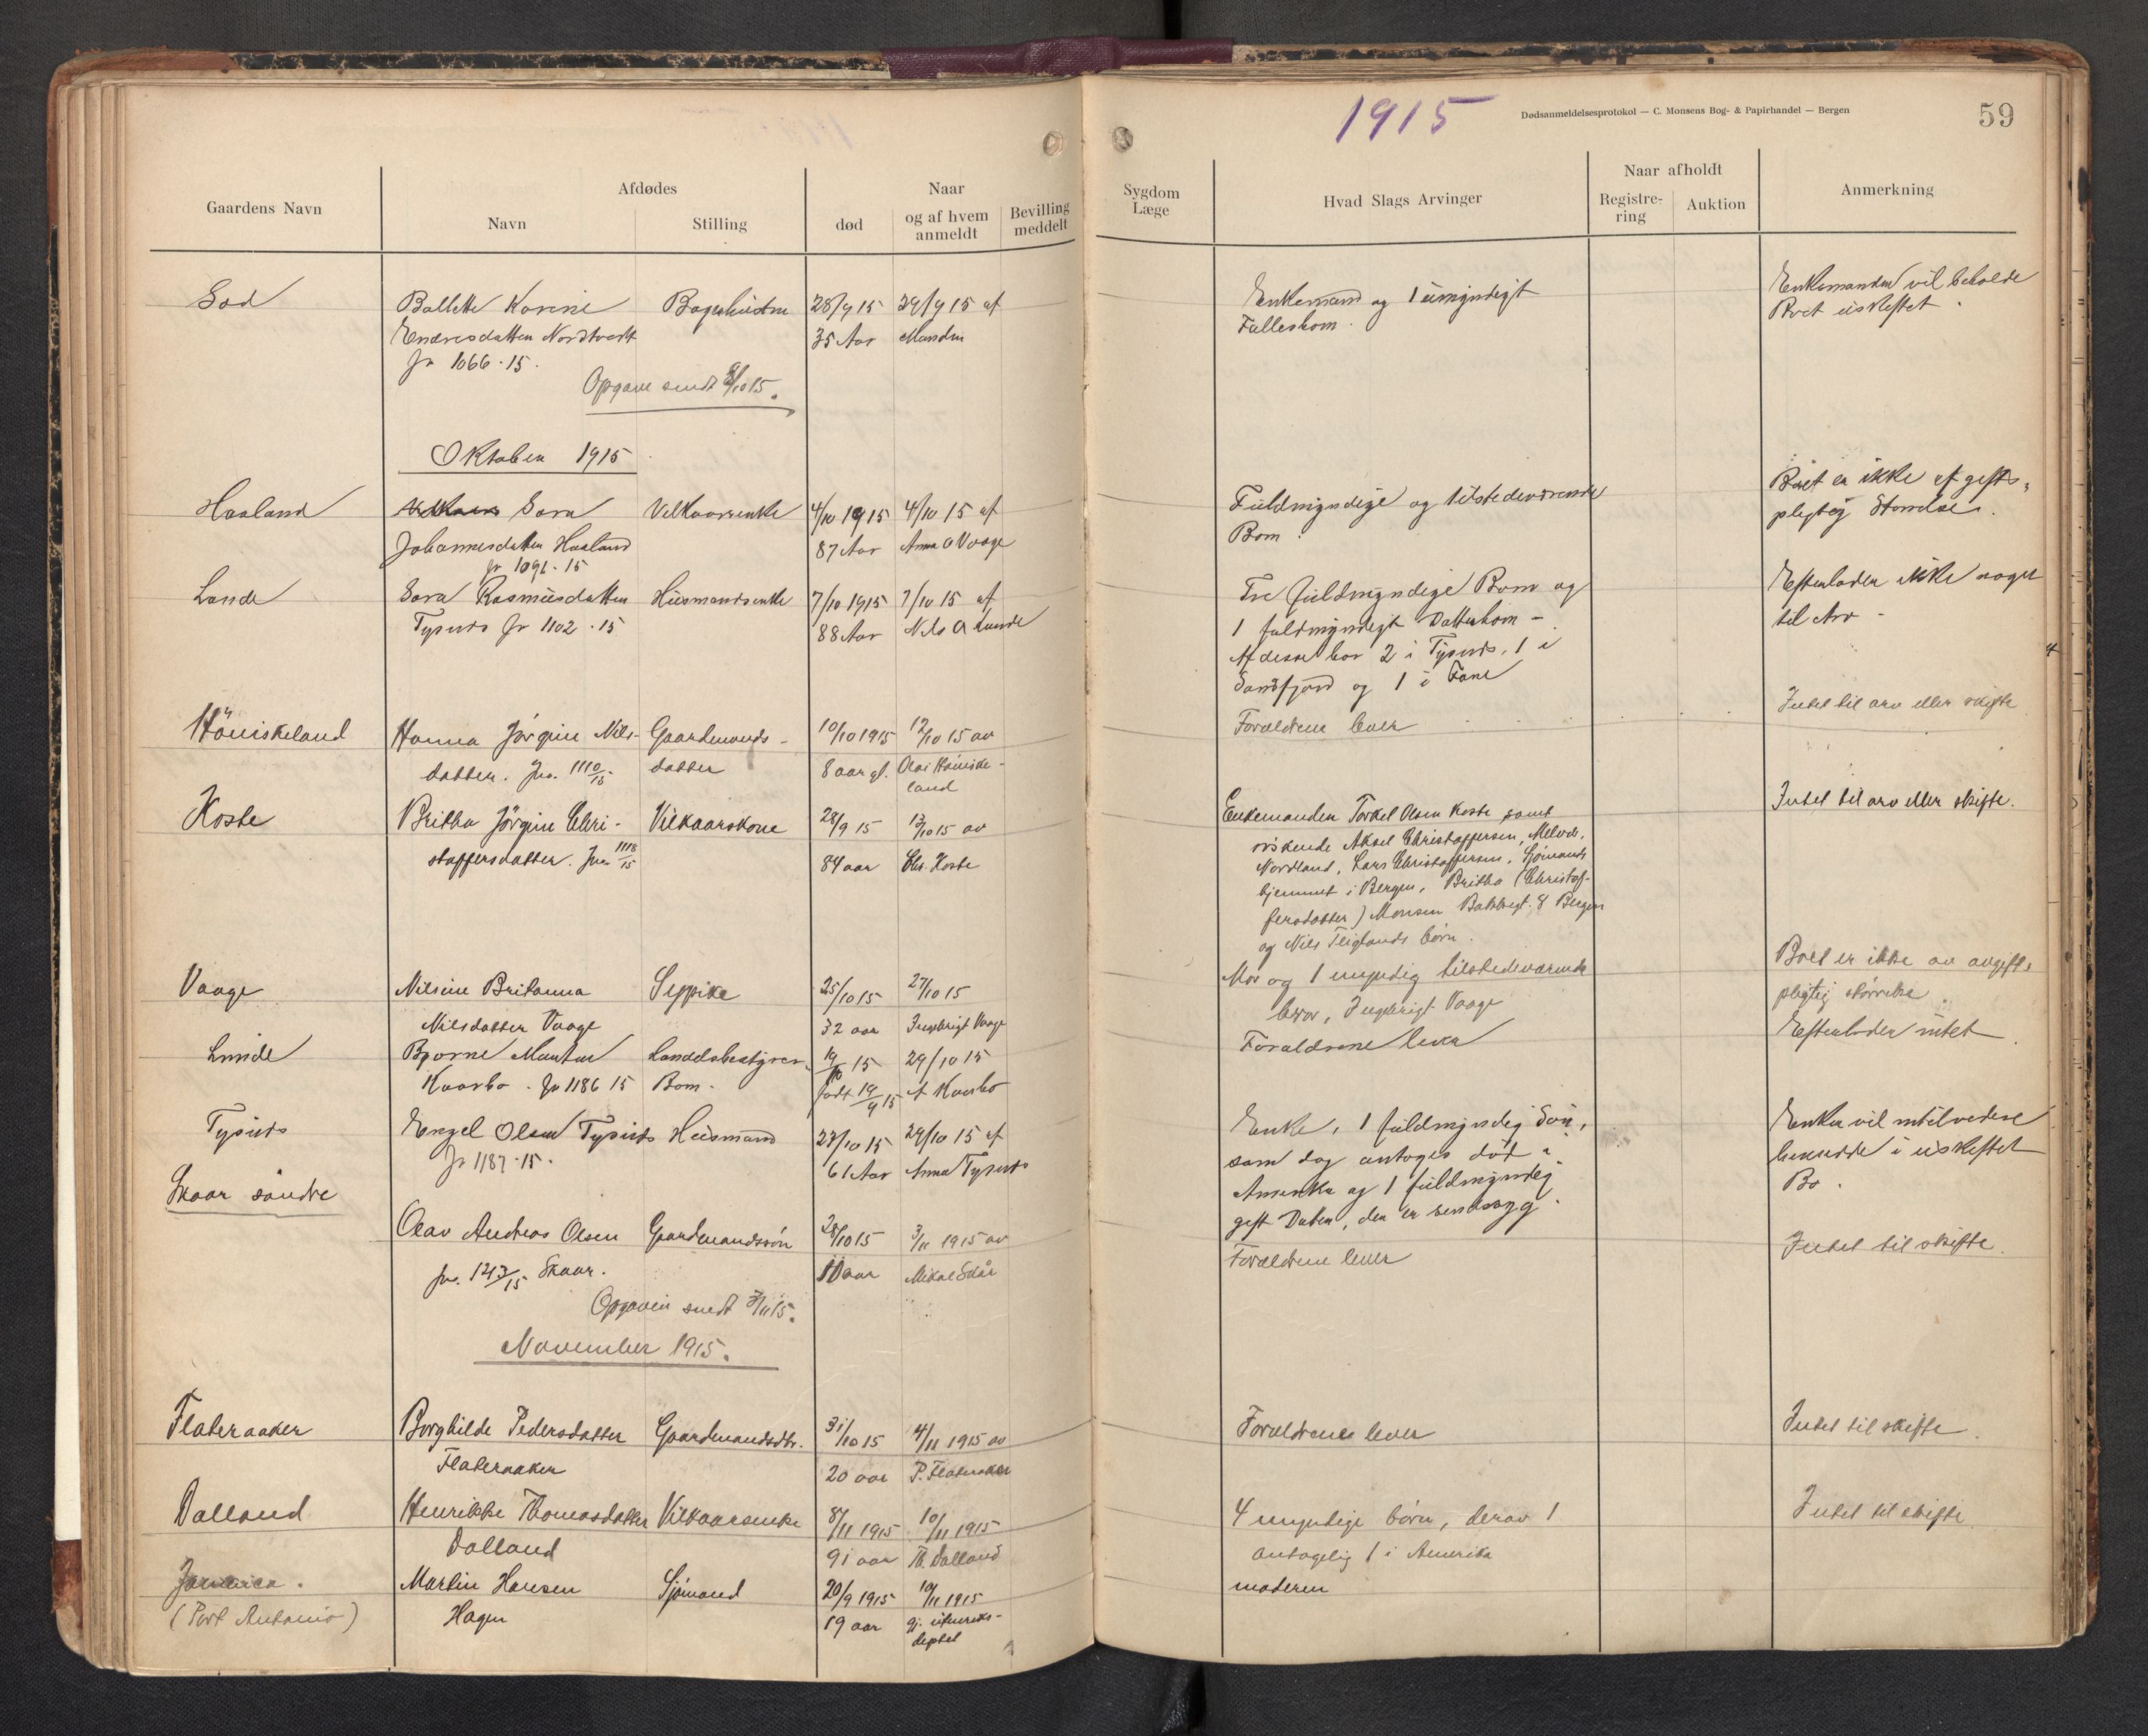 1915
Dødsanmeldelsesprotokol — C. Monsens Bog- & Papirhandel — Bergen
59
Gaardens Navn
Afdødes
Navn
Stilling
Naar
død
og af hvem anmeldt
Bevilling meddelt
Sygdom Læge
Hvad Slags Arvinger
Naar afholdt
Registre-ring
Auktion
Anmerkning
Karine
28/9 15
29/9 15 af
Enkemand og 1 umyndigt
Enkemanden vil beholde
Endresdatter Nordtvedt
35 Aar
Manden
Fællesbarn.
Boet uskiftet.
Jr 1066-15.
Opgave sendt 8/10 15.
Oktober 1915
Haaland
Sara
Velkaarsenke
4/10 1915
4/10 15 af
Fuldmyndige og tilstedeværende
Boet er ikke afgifts-
Johannesdatter Haaland
87 Aar
Anna O Vaage
Børn.
pligtig Størrelse.
Jr 1091-15
Lande
Sara Rasmusdatter
Husmandsenke
7/10 1915
7/10 15 af
Tre fuldmyndige Børn og
Efterlader ikke noget
Tysnes Jr 1102-15
88 Aar
Nils O Lunde
1 fuldmyndigt Datterbarn -
til Arv -
Af disse bor 2 i Tysnes, 1 i
Sandfjord og 1 i Fane
Höiniskeland
Hanna Jörgine Nils-
Gaardmands-
10/10 1915
12/10 15 av
Forældrene lever
Intet til arv eller skifte
datter. Jno. 1110/15
datter
8 aar gl.
Olai Höiniske-
land
Koste
Britha Jörgine Chri-
Vilkaarskone
28/9 15
13/10 15 av
Enkemanden Torkel Olsen Koste samt
Intet til arv eller skifte.
stoffersdatter. Jno. 1118/15
84 aar
Chr. Koste
søskende Aksel Christoffersen, Melvds.
Nordland, Lars Christoffersen, Sjømands
hjemmet i Bergen, Britha (Christof-
fersdatter) Monsen 8 Bergen
og Nils børn.
Vaage
Nilsine Britanna
25/10 15
27/10 15
Mor og 1 myndig tilstedeværende
Boet er ikke av avgifts
Nilsdatter Vaage
32 aar
Ingebrigt Vaage
bror, Ingebrigt Vaage
pligtig størrelse.
Lunde
Bjarne Martin
19/10 15
29/10 15
Forældrene lever
Efterlader intet.
Kaarbo. Jr 1186 15
Barn.
født 19/9 15
af Kaarbo
Tysnes
Engel Olsen Tysnes
Husmand
27/10 15
29/10 15 af
Enke, 1 fuldmyndig Søn,
Enken vil
Jr 1187-15.
61 Aar
Anna Tysnes
som dog antages død i
i uskiftet
Amerika og 1 fuldmyndig
Bo.
gift Datter, den er sindssyg.
Skaar söndre
Olav Andreas Olsen
Gaardmandssön
28/10 15
3/11 1915 av
Forældrene lever
Intet til skifte.
Jno. 1213/15 Skaar.
Mikal Skår
Opgaven sendt 3/11 15.
November 1915.
Flateraaker
Borghilde Pedersdatter
Gaardmandsdtr.
31/10 15
4/11 1915 av
Forældrene lever
Intet til skifte.
Flateraaker
20 aar
P. Flateraaker
Dalland
Henrikke Thomasdatter
Vilkaarsenke
8/11 1915
10/11 1915
4 myndige børn, derav 1
Intet til skifte
Dalland
91 aar
Th. Dalland
antagelig 1 i Amerika
Jamaica.
Martin Hansen
Sjømand
20/9 1915
10/11 1915
moderen
(Port Antonio)
Hagen
19 aar
gj. utenriks-
deptet